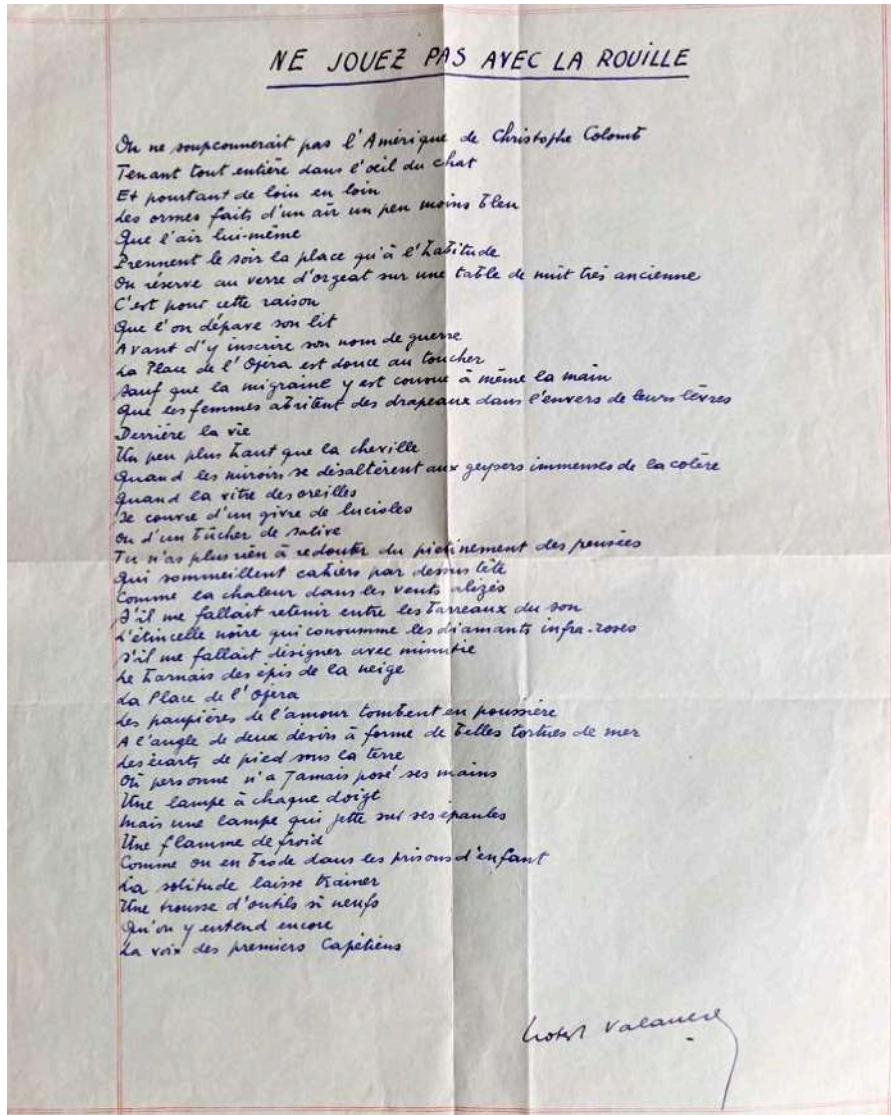 NE JOUEZ PAS AVEC LA ROUILLE
On ne soupconnerait pas l'Amérique de Christophe Colomb
Tenant tout entière dans l'oeil du chat
Et pourtant de loin en loin
Les ormes faits d'un air un peu moins bleu
Que l'air lui-même
Prennent le soir la place qu'à l'habitude
On réserve au verre d'orgeat sur une table de nuit très ancienne
C'est pour cette raison
Que l'on dépave son lit
Avant d'y inscrire son nom de guerre
La Place de l'Opéra est douce au toucher
Sauf que la migraine y est cousue à même la main
Que les femmes abritent des drapeaux dans l'envers de leurs lèvres
Derrière la vie
Un peu plus haut que la cheville
Quand les miroirs se désaltèrent aux geysers immenses de la colère
Quand la vitre des oreilles
Se couvre d'un givre de lucioles
Ou d'un bûcher de salive
Tu n'as plus rien à redouter du piétinement des pensées
Qui sommeillent cahiers par dessus tête
Comme la chaleur dans les vents alizés
S'il me fallait retenir entre les barreaux du son
L'étincelle noire qui consumme les diamants infra-roses
S'il me fallait désigner avec minutie
Le harnais des épis de la neige
La Place de l'Opéra
Les paupières de l'amour tombent en poussière
A l'angle de deux désirs à forme de belles tortues de mer
Les écarts de pied sous la terre
Où personne n'a jamais posé ses mains
Une lampe à chaque doigt
Mais une lampe qui jette sur ses épaules
Une flamme de froid
Comme on en brode dans les prisons d'enfant
La solitude laisse trainer
Une trousse d'outils si neufs
Qu'on y entend encore
La voix des premiers Capétiens